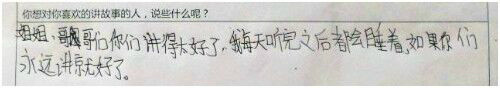 你想对你喜欢的讲故事的人,说些什么呢?
姐姐、哥哥们你们讲得太好了,我每天听完之后都会睡着,如果你们
永远讲就好了。